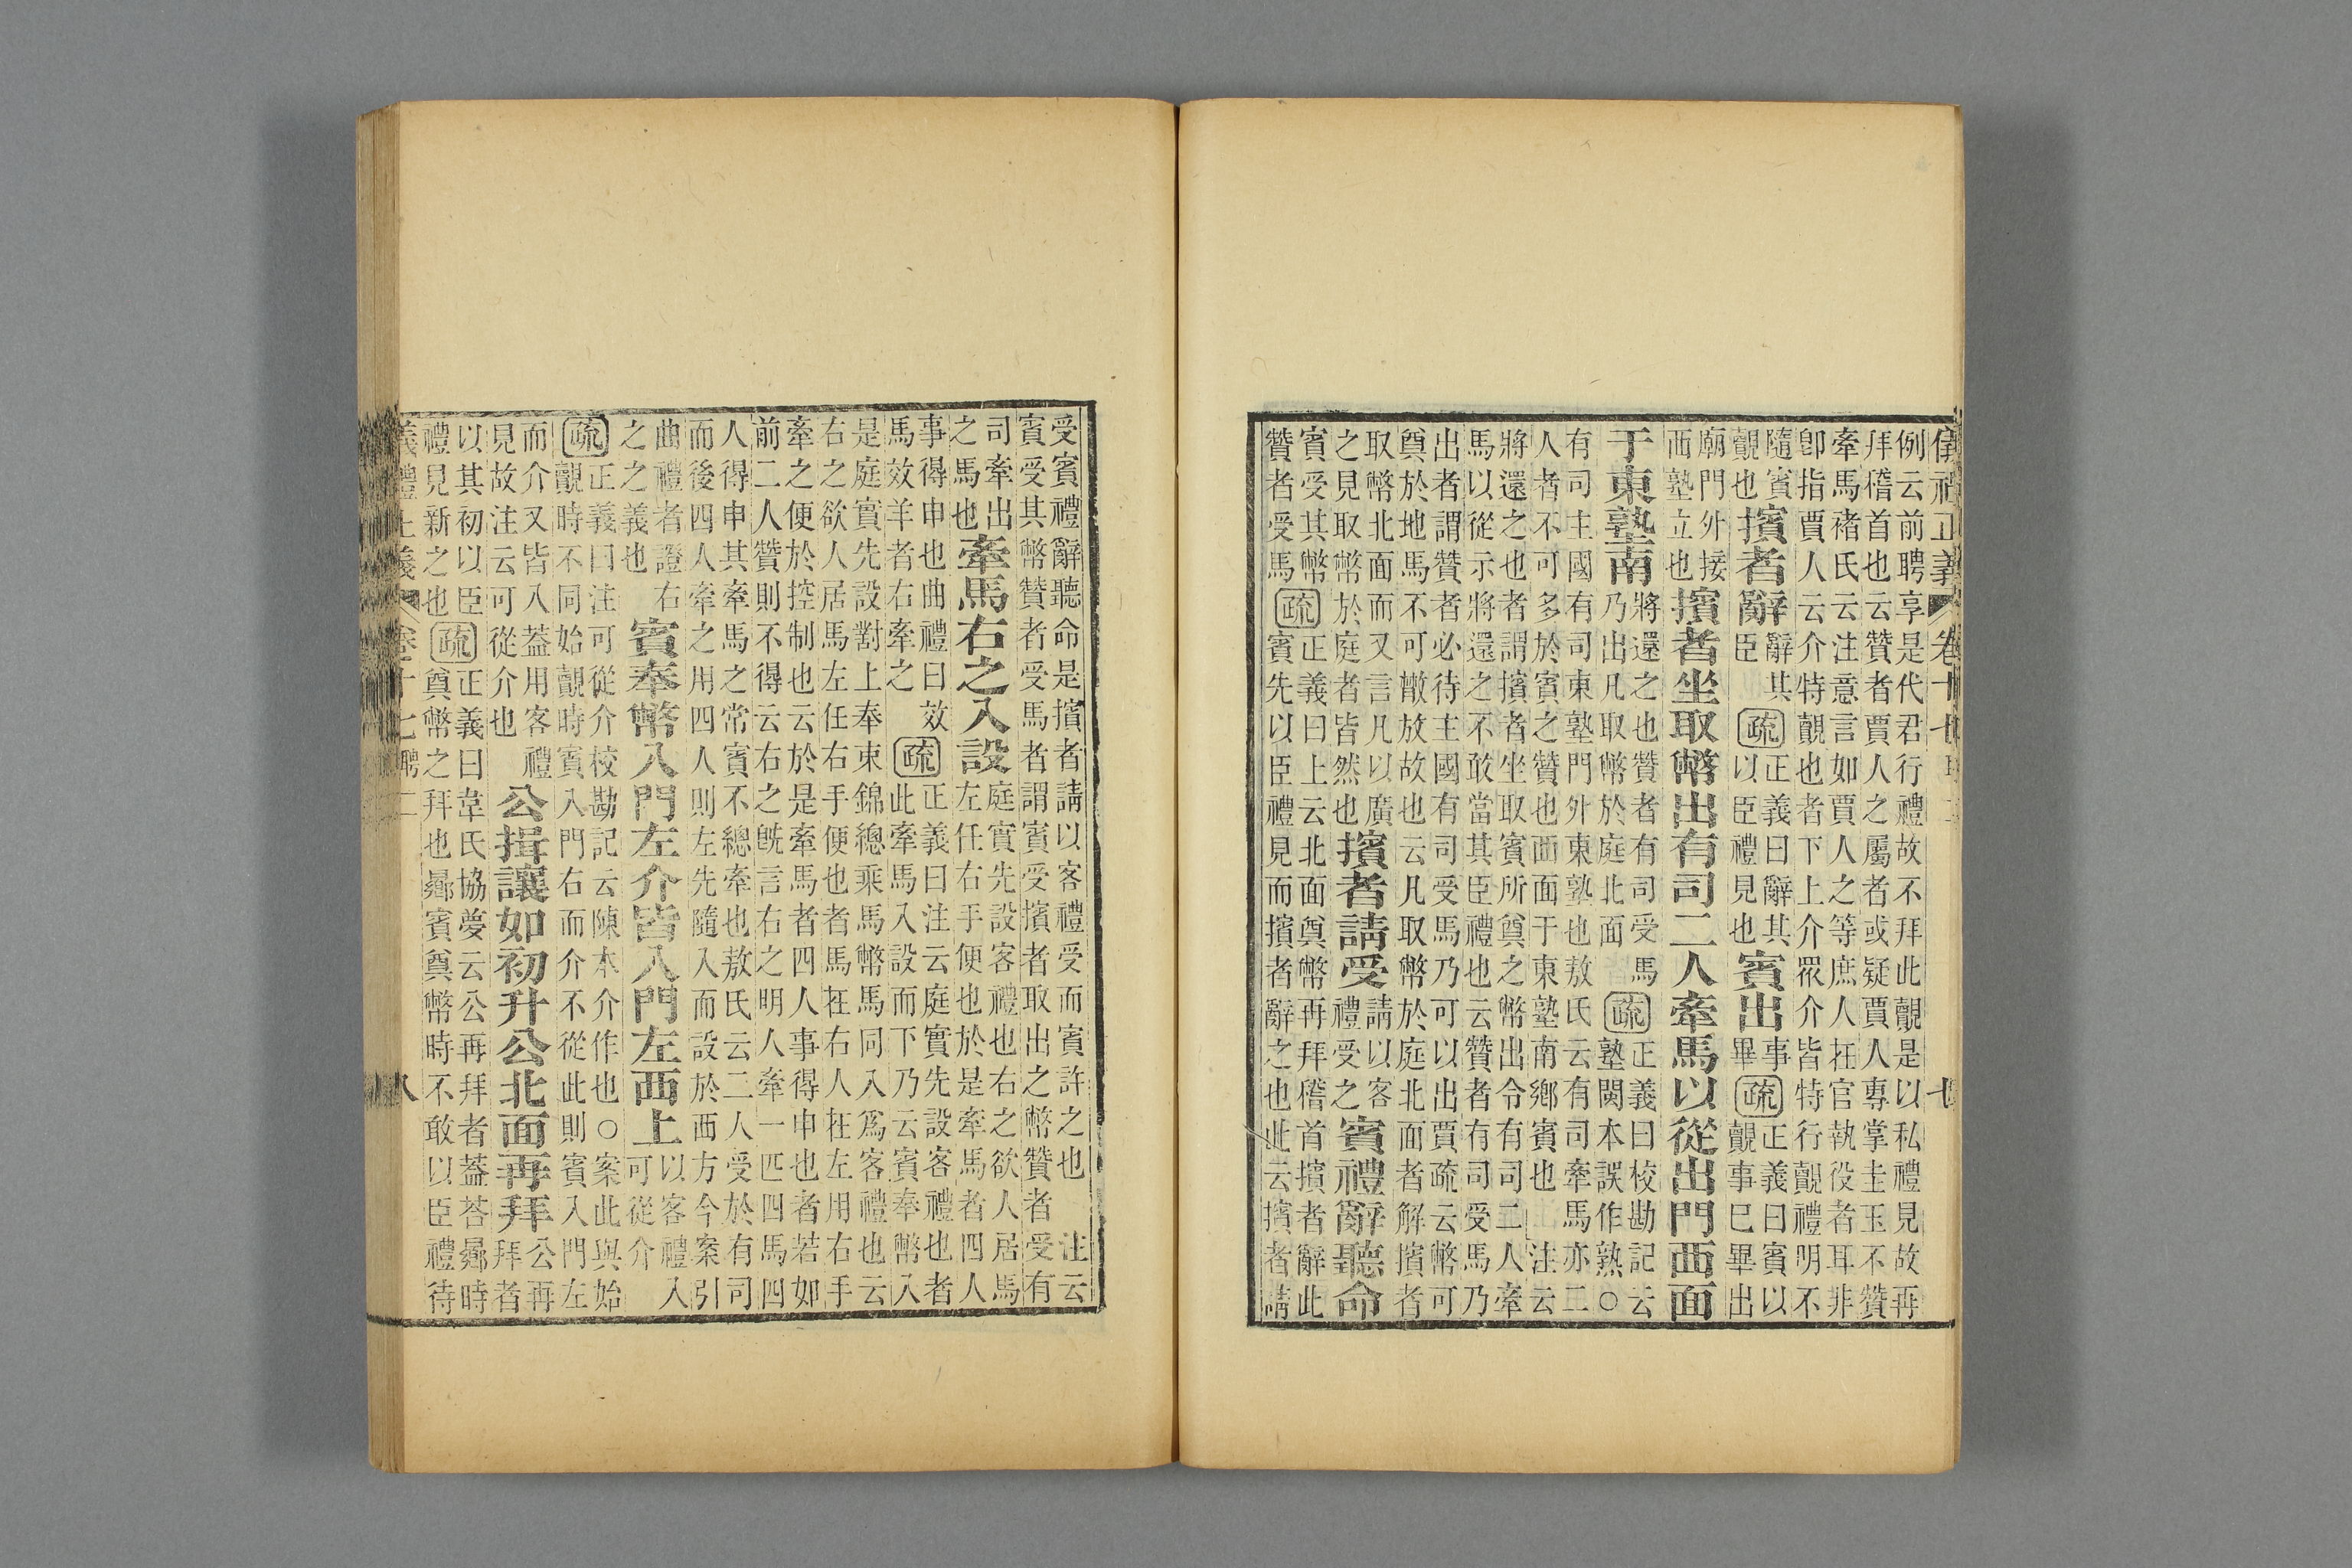 儀禮正義 卷十七 聘二 七
例云前聘享是代君行禮故不拜此覿是以私禮見故再
拜稽首也云贊者賈人之屬者或疑賈人專掌圭玉不贊
牽馬褚氏云注意言如賈人之等庶人在官執役者耳非
卽指賈人云介特覿也者下上介眾介皆特行覿禮明不
隨賓
覿也
擯者辭
辭其
臣
疏
正義曰辭其
以臣禮見也
賓出
事
畢
疏
正義曰賓以
覿事已畢出
廟門外接
西塾立也
擯者坐取幣出有司二人牽馬以從出門西面
于東塾南
將還之也贊者有司受馬
乃出凡取幣於庭北面
疏
正義曰校勘記云
塾閩本誤作熟○
有司主國有司東塾門外東塾也敖氏云有司牽馬亦二
人者不可多於賓之贊也西面于東塾南鄉賓也 注云
將還之也者謂擯者坐取賓所奠之幣出令有司二人牽
馬以從示將還之不敢當其臣禮也云贊者有司受馬乃
出者謂贊者必待主國有司受馬乃可以出賈疏云幣可
奠於地馬不可散放故也云凡取幣於庭北面者解擯者
取幣北面而又言凡以廣
之見取幣於庭者皆然也
擯者請受
請以客
禮受之
賓禮辭聽命
賓受其幣
贊者受馬
疏
正義曰上云北面奠幣再拜稽首擯者辭此
賓先以臣禮見而擯者辭之也此云擯者請
受賓禮辭聽命是擯者請以客禮受而賓許之也 注云
賓受其幣贊者受馬者謂賓受擯者取出之幣贊者受有
司牽出
之馬也
牽馬右之入設
庭實先設客禮也右之欲人居馬
左任右手便也於是牽馬者四人
事得申也曲禮曰效
馬效羊者右牽之
疏
正義曰注云庭實先設客禮也者
此牽馬入設而下乃云賓奉幣入
是庭實先設對上奉束錦總乘馬幣馬同入爲客禮也云
右之欲人居馬左任右手便也者馬在右人在左用右手
牽之便於控制也云於是牽馬者四人事得申也者若如
前二人贊則不得云右之既言右之明人牽一匹四馬四
人得申其牽馬之常賓不總牽也敖氏云二人受於有司
而後四人牽之用四人則左先隨入而設於西方今案引
曲禮者證右
之之義也
賓奉幣入門左介皆入門左西上
以客禮入
可從介
疏
正義曰注可從介校勘記云陳本介作也○案此與始
覿時不同始覿時賓入門右而介不從此則賓入門左
而介又皆入葢用客禮
見故注云可從介也
公揖讓如初升公北面再拜
公再
拜者
以其初以臣
禮見新之也
疏
正義曰韋氏協夢云公再拜者葢荅曏時
奠幣之拜也曏賓奠幣時不敢以臣禮待
義禮正義 卷十七 聘二 八